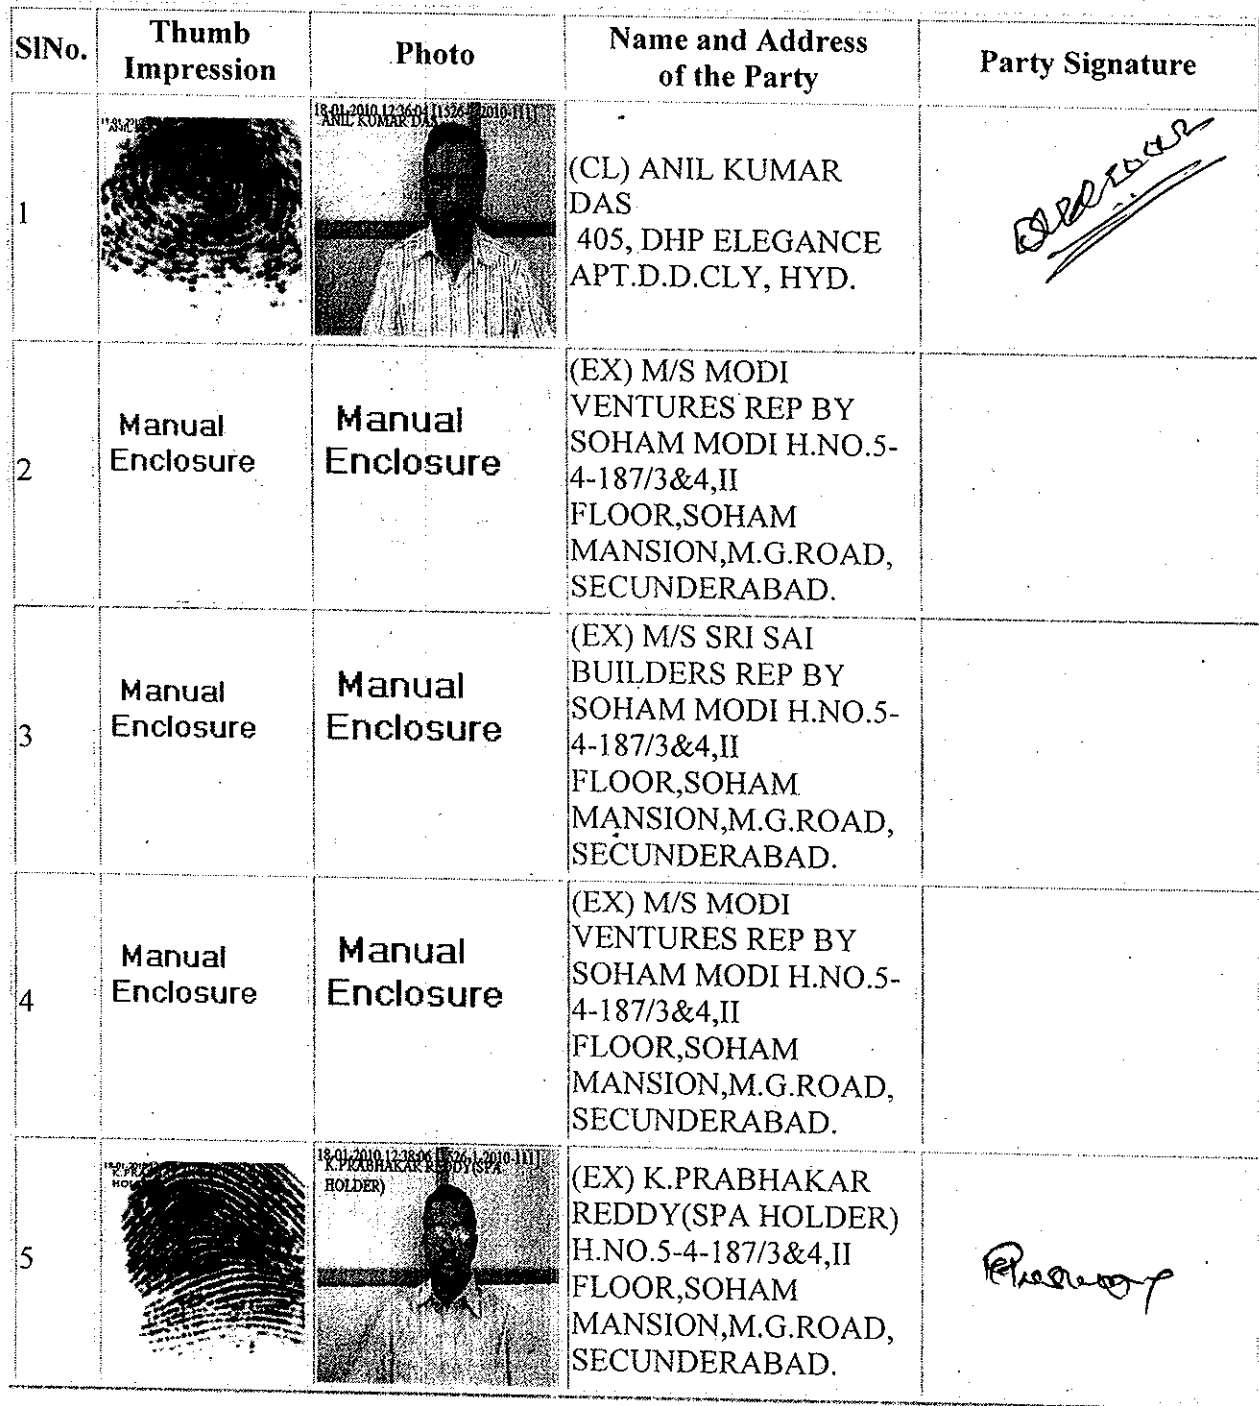 SlNo.
Thumb
Impression
Photo
Name and Address
of the Party
Party Signature
1
18-01-2010 12:36:04 [1526-1-2010-111]
ANIL KUMAR DAS
(CL) ANIL KUMAR
DAS
405, DHP ELEGANCE
APT.D.D.CLY, HYD.
2
Manual
Enclosure
Manual
Enclosure
(EX) M/S MODI
VENTURES REP BY
SOHAM MODI H.NO.5-
4-187/3&4,II
FLOOR,SOHAM
MANSION,M.G.ROAD,
SECUNDERABAD.
3
Manual
Enclosure
Manual
Enclosure
(EX) M/S SRI SAI
BUILDERS REP BY
SOHAM MODI H.NO.5-
4-187/3&4,II
FLOOR,SOHAM
MANSION,M.G.ROAD,
SECUNDERABAD.
4
Manual
Enclosure
Manual
Enclosure
(EX) M/S MODI
VENTURES REP BY
SOHAM MODI H.NO.5-
4-187/3&4,II
FLOOR,SOHAM
MANSION,M.G.ROAD,
SECUNDERABAD.
5
18-01-2010 12:38:06 [1526-1-2010-111]
K.PRABHAKAR REDDY(SPA
HOLDER)
(EX) K.PRABHAKAR
REDDY(SPA HOLDER)
H.NO.5-4-187/3&4,II
FLOOR,SOHAM
MANSION,M.G.ROAD,
SECUNDERABAD.